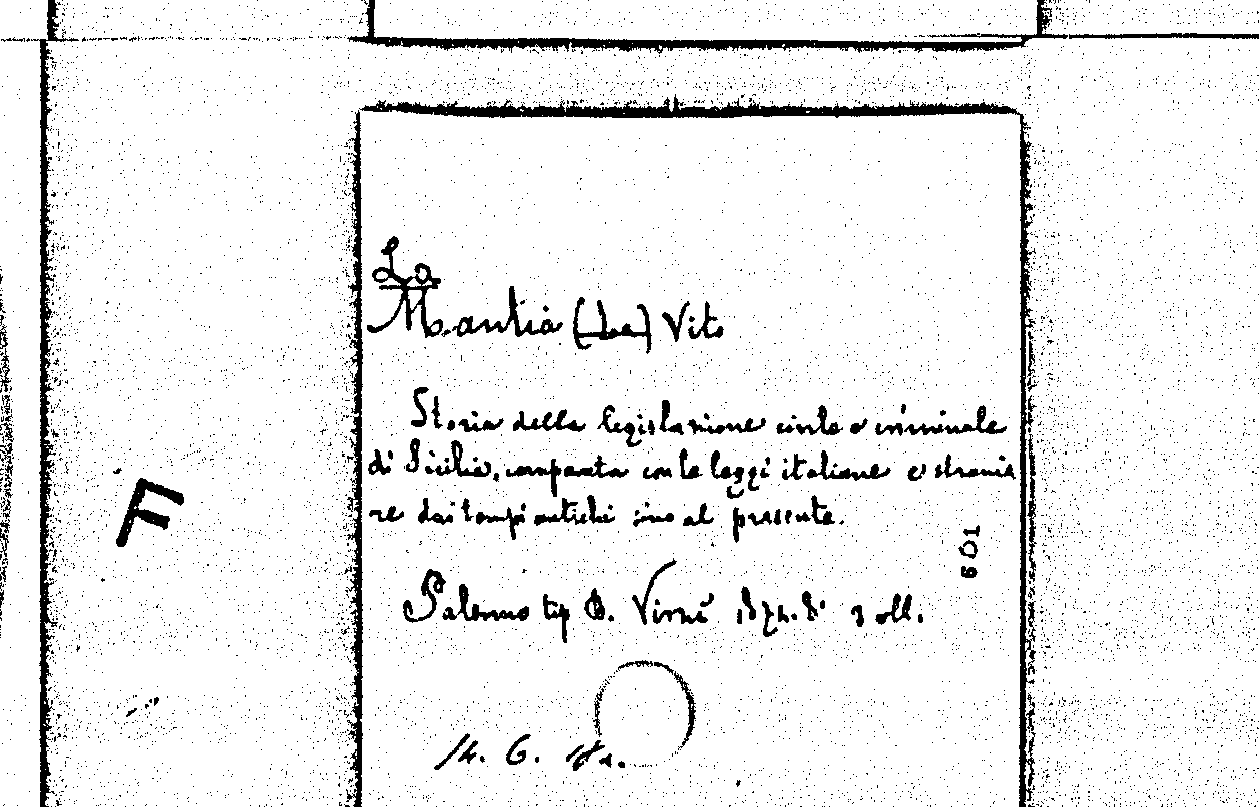 La
Mantia (La) Vito
Storia della legislazione civile e criminale
di Sicilia, comparata con le leggi italiane e stranie
re dai tempi antichi sino al presente.
Palermo tip. Virzì 8° 3 oll.
14. G.
F